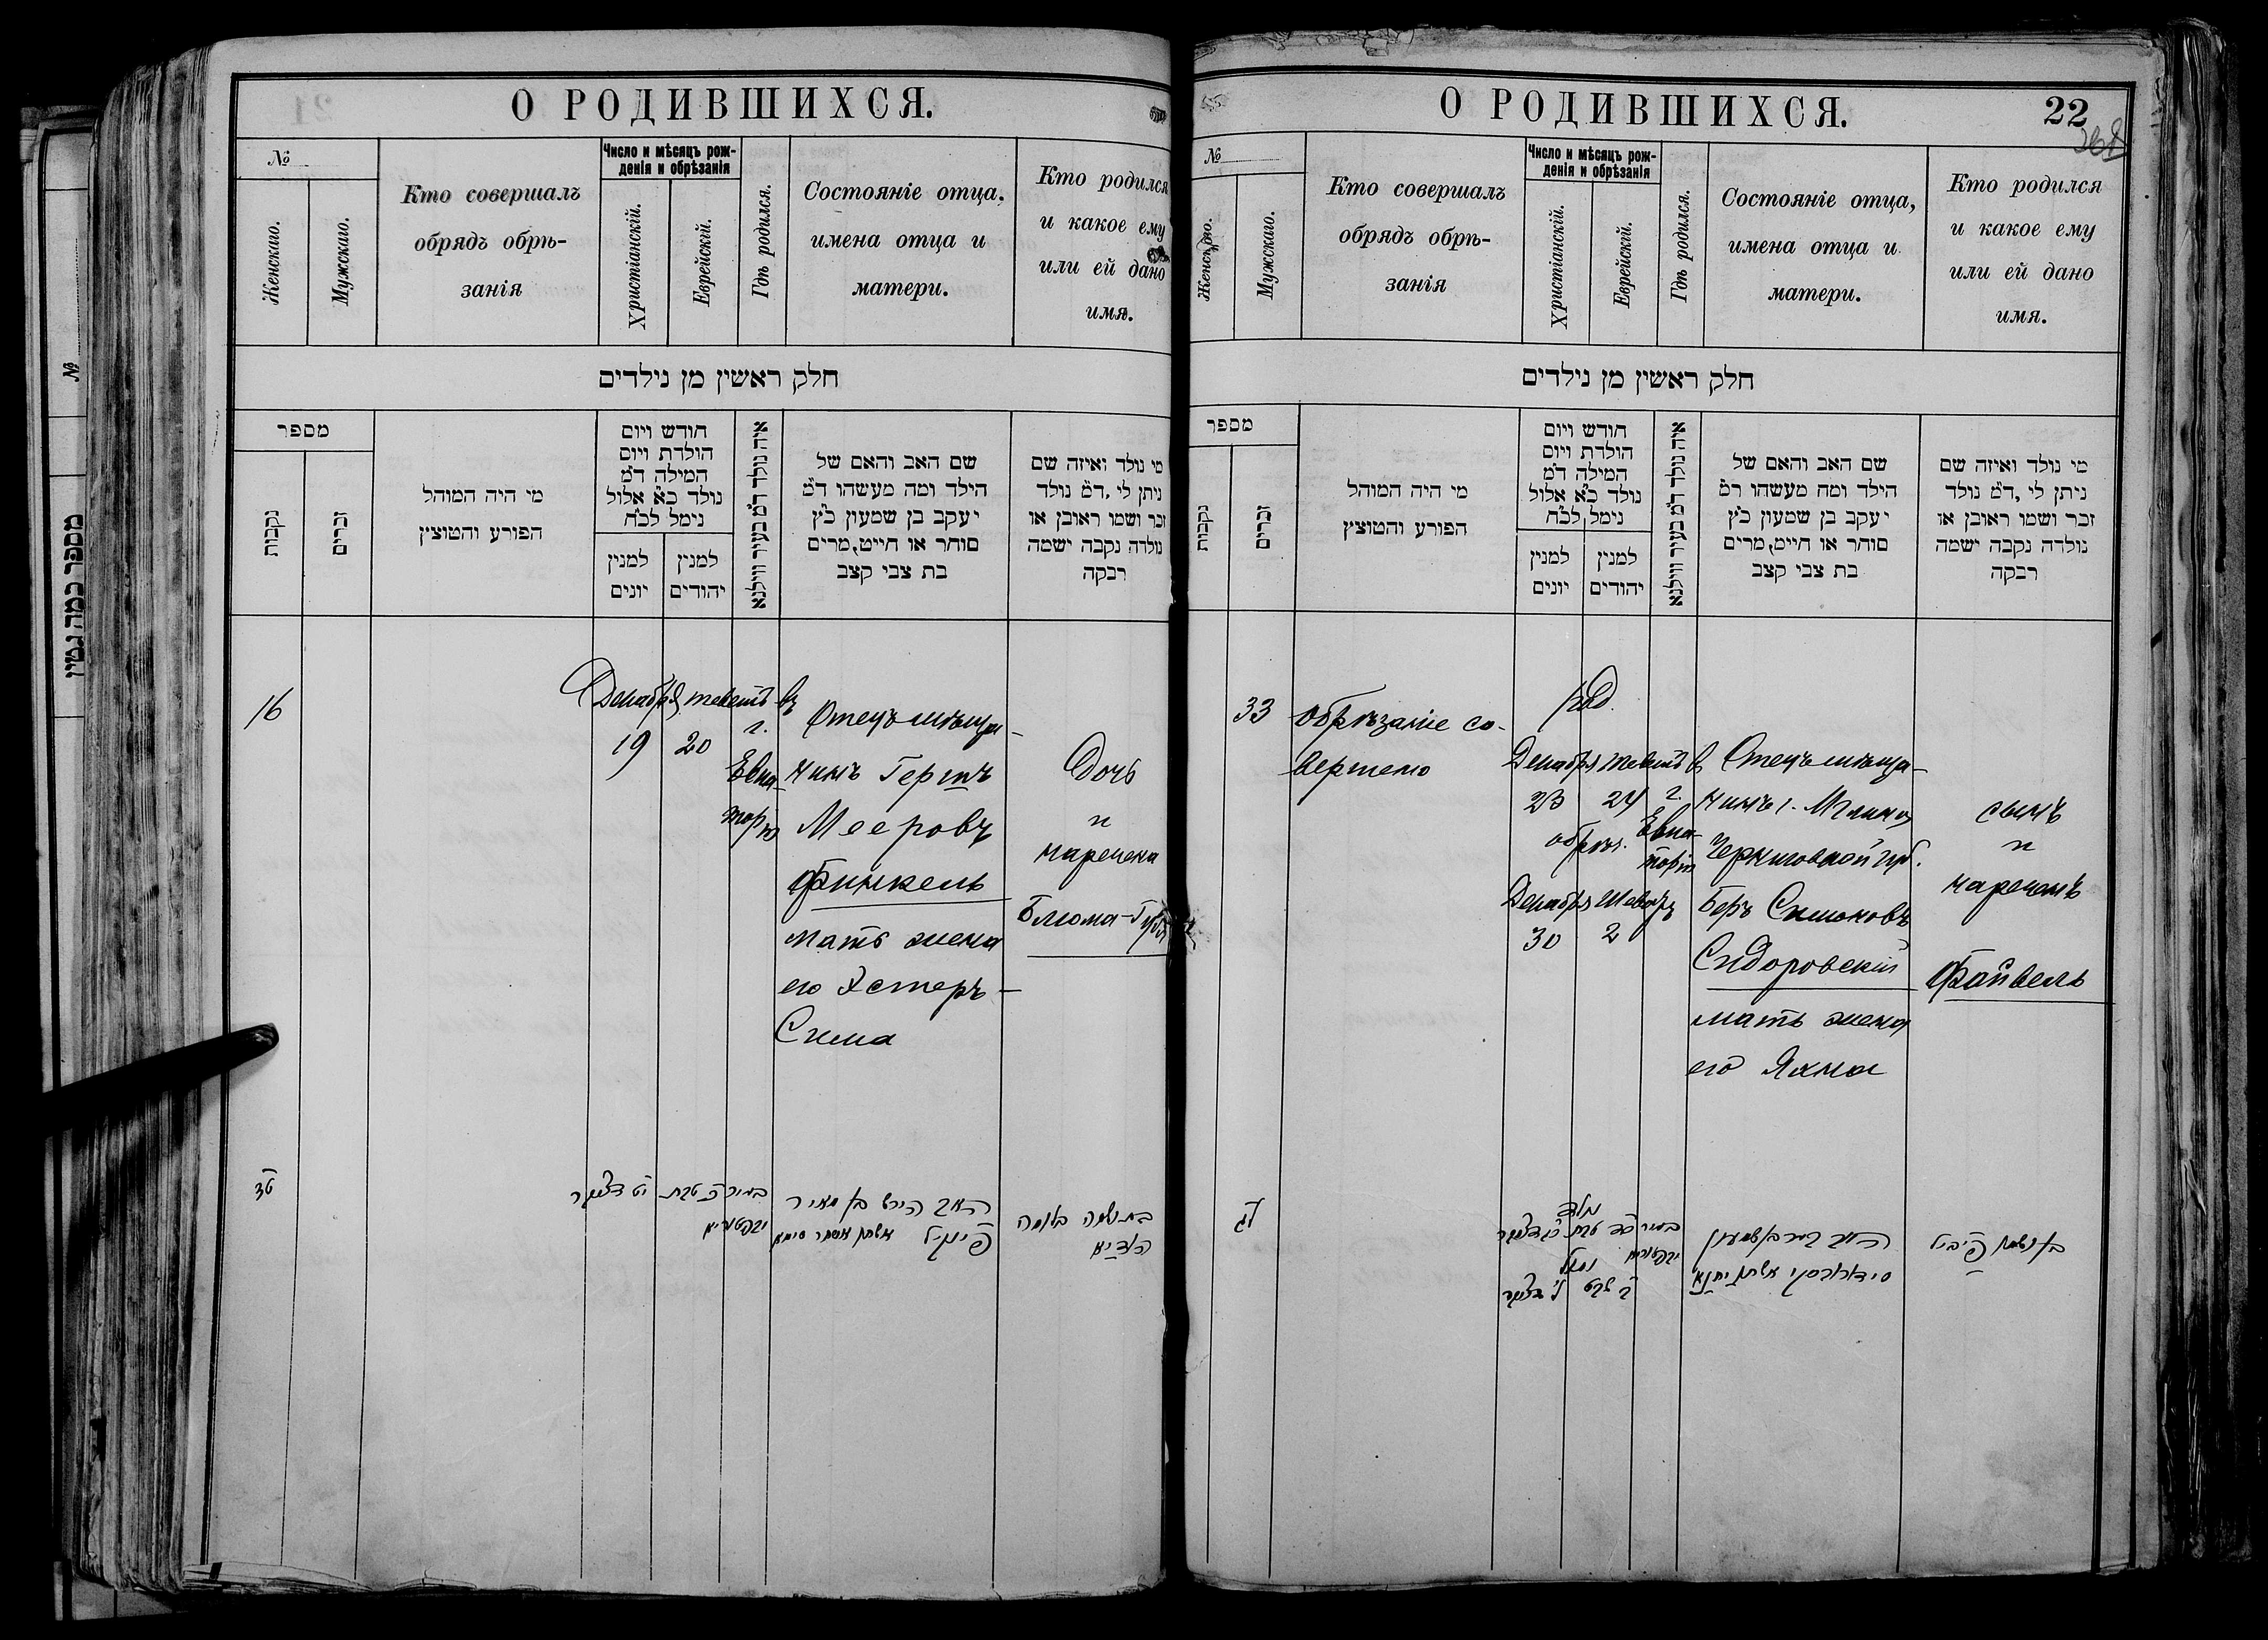 О РОДИВШИХСЯ.
№
Женскаго.
Мужскаго.
Кто совершалъ
обрядъ обрѣ-
занія
Число и мѣсяцъ рож-
денія и обрѣзанія
Христіанскій.
Еврейскій.
Гдѣ родился.
Состояніе отца,
имена отца и
матери.
Кто родился
и какое ему
или ей дано
имя.
חלק ראשין מן נילדים
מספר
נקבות
זכרים
מי היה המוהל
הפורע והמוצץ
חודש ויום
הולדת ויום
המילה ד״מ
נולד כ״א אלול
נימל לכ״ח
למנין
יונים
למנין
יהודים
איה נולד ד״מ בעיר ווילנא
שם האב והאם של
הילד ומה מעשהו ד״מ
יעקב בן שמעון כ״ץ
סוחר או חייט, מרים
בת צבי קצב
מי נולד ואיזה שם
ניתן לי, ד״מ נולד
זכר ושמו ראובן או
נולדה נקבה ישמה
רבקה
16
Декабря
19
теветъ
20
въ
г.
Евпа-
торіи
Отецъ мѣща-
нинъ Гершъ
Мееровъ
Финкель
мать жена
его Эстеръ-
Сима
Дочь
и
наречена
Блюма-
О РОДИВШИХСЯ.
22
№
Женскаго.
Мужскаго.
Кто совершалъ
обрядъ обрѣ-
занія
Число и мѣсяцъ рож-
денія и обрѣзанія
Христіанскій.
Еврейскій.
Гдѣ родился.
Состояніе отца,
имена отца и
матери.
Кто родился
и какое ему
или ей дано
имя.
חלק ראשין מן נילדים
מספר
נקבות
זכרים
מי היה המוהל
הפורע והמוצץ
חודש ויום
הולדת ויום
המילה ד״מ
נולד כ״א אלול
נימל לכ״ח
למנין
יונים
למנין
יהודים
איה נולד ד״מ בעיר ווילנא
שם האב והאם של
הילד ומה מעשהו ד״מ
יעקב בן שמעון כ״ץ
סוחר או חייט, מרים
בת צבי קצב
מי נולד ואיזה שם
ניתן לי, ד״מ נולד
זכר ושמו ראובן או
נולדה נקבה ישמה
רבקה
33
обрѣзаніе со-
вершено
род.
Декабря
23
теветъ
24
обрѣз.
Декабря
30
шеватъ
2
в
г.
Евпа-
торіи
Отецъ мѣща-
нинъ г. Мглина
Черниговской губ.
Беръ Симоновъ
Сидоровскій
мать жена
его Яхна
сынъ
и
нареченъ
Файвель
לג
האב בער בן שמעון
סידאראווסקי אשתו יחנא
בן נשמו פייביל